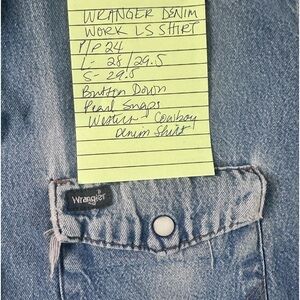 WRANGER DENIM
WORK LS SHIRT
P/P 24
L- 28/29.5
S- 29.5
Button Down
Pearl Snaps
Western - Cowboy
Denim Shirt
Wrangler